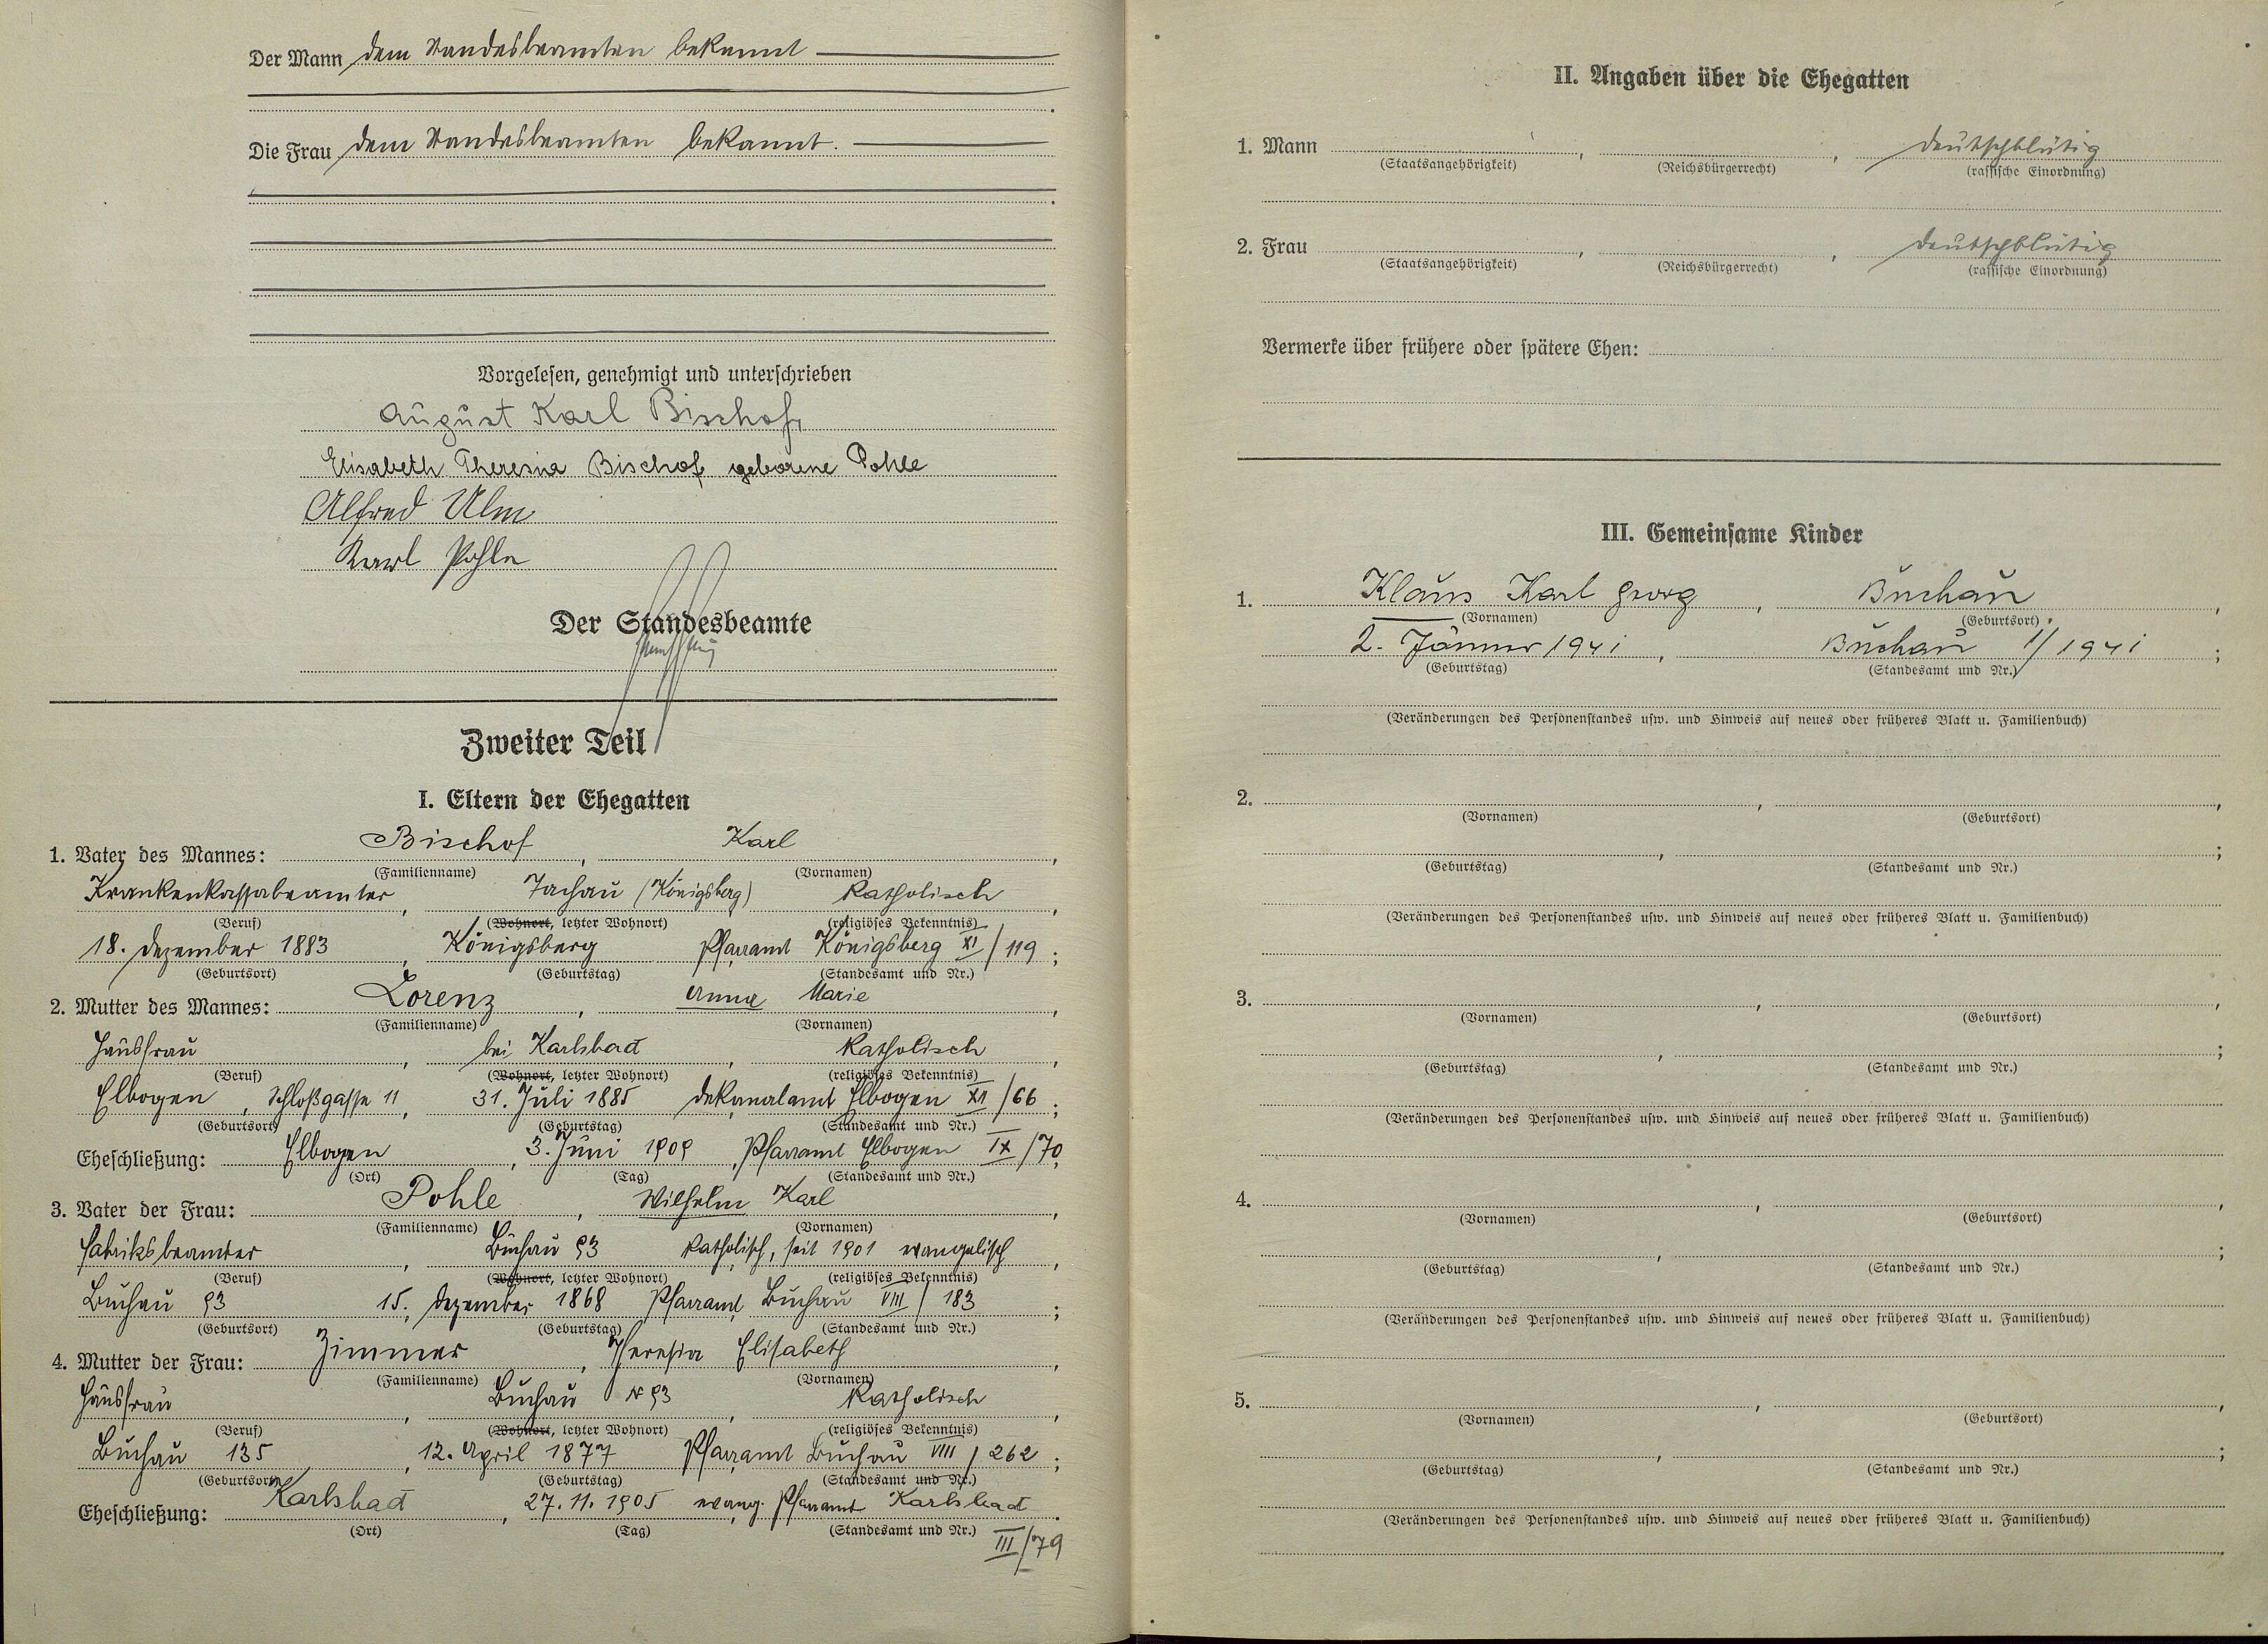 Der Mann dem Standesbeamten bekannt
Die Frau dem Standesbeamten bekannt.
Vorgelesen, genehmigt und unterschrieben
August Karl Bischof
Elisabeth Theresia Bischof geborene Pohle
Alfred Ulm
Karl Pohle
Der Standesbeamte
Zweiter Teil
I. Eltern der Ehegatten
1. Vater des Mannes: Bischof, Karl,
(Familienname) (Vornamen)
Krankenkassabeamter, Tachau (Königsberg) katholisch,
(Beruf) (Wohnort, letzter Wohnort) (religiöses Bekenntnis)
18. Dezember 1883, Königsberg Pfarramt Königsberg XI/119;
(Geburtsort) (Geburtstag) (Standesamt und Nr.)
2. Mutter des Mannes: Lorenz, Anna Marie,
(Familienname) (Vornamen)
Hausfrau, bei Karlsbad, katholisch,
(Beruf) (Wohnort, letzter Wohnort) (religiöses Bekenntnis)
Elbogen, Schloßgasse 11, 31. Juli 1885 Dekanalamt Elbogen XI/66;
(Geburtsort) (Geburtstag) (Standesamt und Nr.)
Eheschließung: Elbogen, 3. Juni 1909, Pfarramt Elbogen IX/70
(Ort) (Tag) (Standesamt und Nr.)
3. Vater der Frau: Pohle, Wilhelm Karl,
(Familienname) (Vornamen)
Fabriksbeamter, Buchau 93 katholisch, seit 1901 evangelisch,
(Beruf) (Wohnort, letzter Wohnort) (religiöses Bekenntnis)
Buchau 93 15. Dezember 1868 Pfarramt Buchau VIII/183;
(Geburtsort) (Geburtstag) (Standesamt und Nr.)
4. Mutter der Frau: Zimmer, Theresia Elisabeth,
(Familienname) (Vornamen)
Hausfrau, Buchau N 93, katholisch,
(Beruf) (Wohnort, letzter Wohnort) (religiöses Bekenntnis)
Buchau 135, 12. April 1877 Pfarramt Buchau VIII/262;
(Geburtsort) (Geburtstag) (Standesamt und Nr.)
Eheschließung: Karlsbad, 27.11.1905 evang. Pfarramt Karlsbad.
(Ort) (Tag) (Standesamt und Nr.)
III/79
II. Angaben über die Ehegatten
1. Mann , , deutschblütig
(Staatsangehörigkeit) (Reichsbürgerrecht) (rassische Einordnung)
2. Frau , , deutschblütig
(Staatsangehörigkeit) (Reichsbürgerrecht) (rassische Einordnung)
Vermerke über frühere oder spätere Ehen:
III. Gemeinsame Kinder
1. Klaus Karl Georg, Buchau,
(Vornamen) (Geburtsort)
2. Jänner 1941, Buchau 1/1941;
(Geburtstag) (Standesamt und Nr.)
(Veränderungen des Personenstandes usw. und Hinweis auf neues oder früheres Blatt u. Familienbuch)
2. , ,
(Vornamen) (Geburtsort)
, ;
(Geburtstag) (Standesamt und Nr.)
(Veränderungen des Personenstandes usw. und Hinweis auf neues oder früheres Blatt u. Familienbuch)
3. , ,
(Vornamen) (Geburtsort)
, ;
(Geburtstag) (Standesamt und Nr.)
(Veränderungen des Personenstandes usw. und Hinweis auf neues oder früheres Blatt u. Familienbuch)
4. , ,
(Vornamen) (Geburtsort)
, ;
(Geburtstag) (Standesamt und Nr.)
(Veränderungen des Personenstandes usw. und Hinweis auf neues oder früheres Blatt u. Familienbuch)
5. , ,
(Vornamen) (Geburtsort)
, ;
(Geburtstag) (Standesamt und Nr.)
(Veränderungen des Personenstandes usw. und Hinweis auf neues oder früheres Blatt u. Familienbuch)